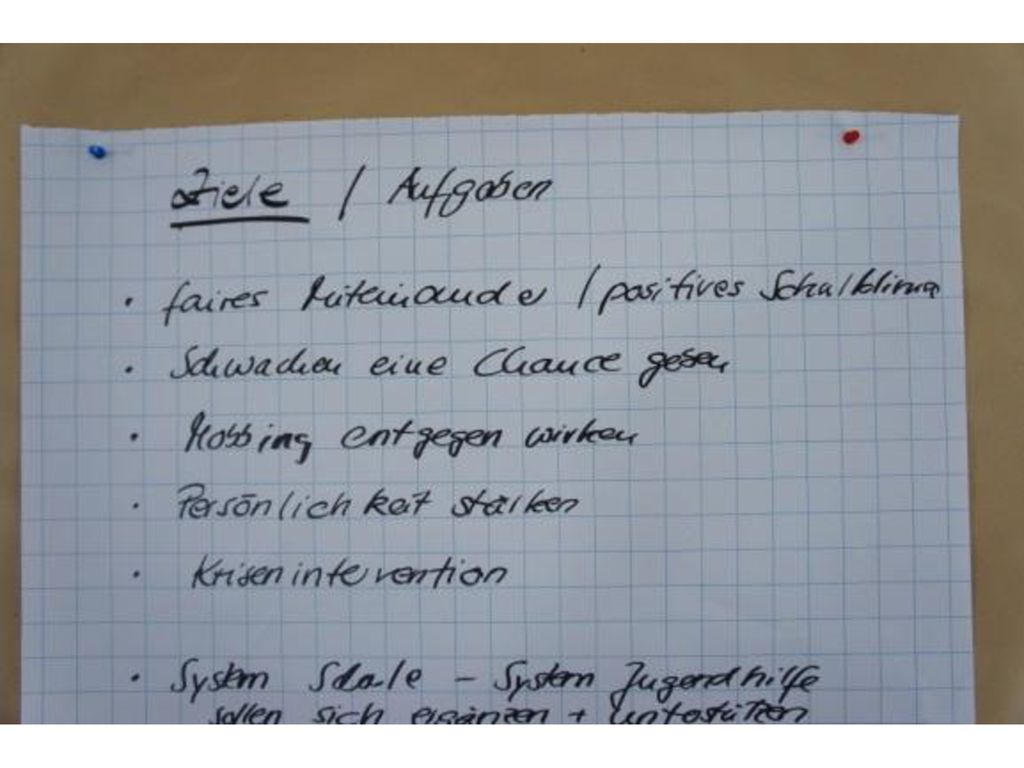 Ziele / Aufgaben
• faires Miteinander / positives Schulklima
• Schwachen eine Chance geben
• Mobbing entgegen wirken
• Persönlichkeit stärken
• Krisenintervention
• System Schule - System Jugendhilfe
sollen sich ergänzen + unterstützen